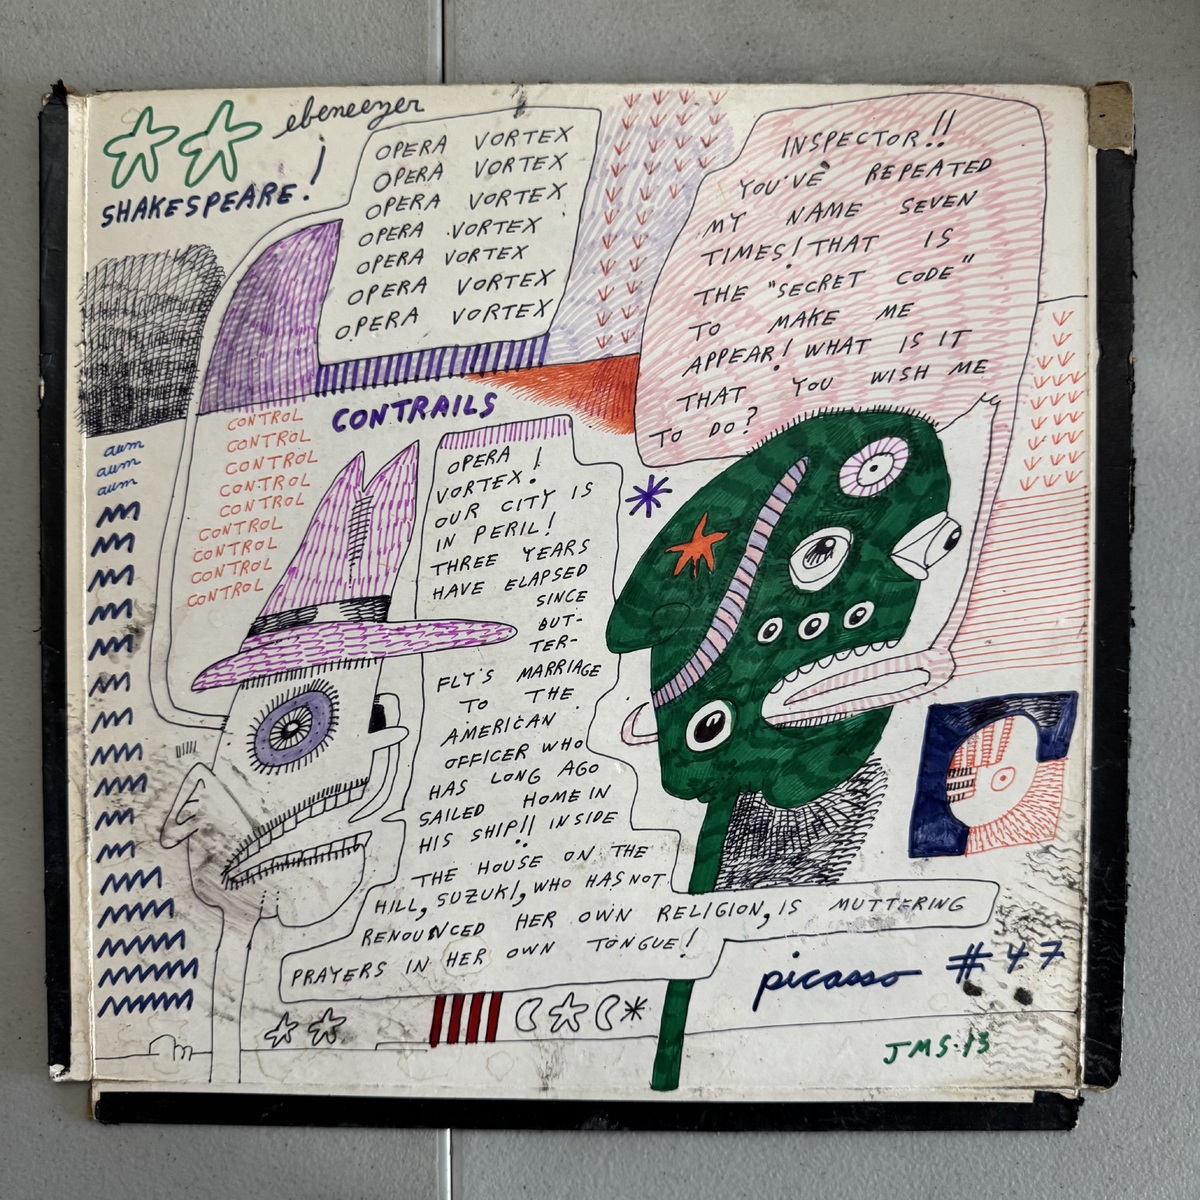 ebeneezer
SHAKESPEARE!
OPERA VORTEX
OPERA VORTEX
OPERA VORTEX
OPERA VORTEX
OPERA VORTEX
OPERA VORTEX
OPERA VORTEX
INSPECTOR!!
YOU'VE REPEATED
MY NAME SEVEN
TIMES! THAT IS
THE "SECRET CODE"
TO MAKE ME
APPEAR! WHAT IS IT
THAT YOU WISH ME
TO DO?
CONTRAILS
CONTROL
CONTROL
CONTROL
CONTROL
CONTROL
CONTROL
CONTROL
CONTROL
CONTROL
aum
aum
aum
OPERA!
VORTEX!
OUR CITY IS
IN PERIL!
THREE YEARS
HAVE ELAPSED
SINCE
BUT-
TER-
FLY'S MARRIAGE
TO THE
AMERICAN
OFFICER WHO
HAS LONG AGO
SAILED HOME IN
HIS SHIP!! INSIDE
THE HOUSE ON THE
HILL, SUZUKI, WHO HAS NOT
RENOUNCED HER OWN RELIGION, IS MUTTERING
PRAYERS IN HER OWN TONGUE!
picasso #47
JMS·13